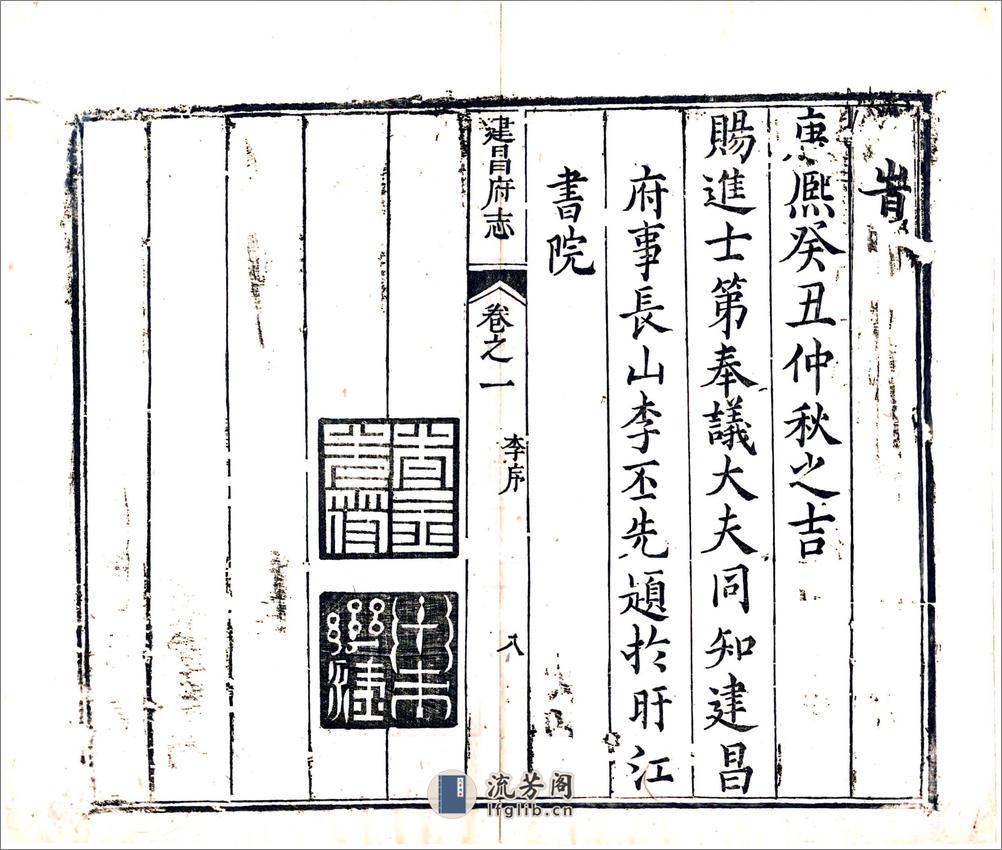 旹
康熙癸丑仲秋之吉
賜進士第奉議大夫同知建昌
府事長山李丕先題於盱江
書院
建昌府志
卷之一
李序
八
流芳阁
lfglib.cn